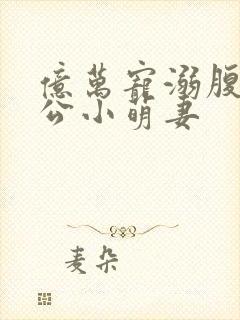 億萬寵溺腹
公小萌妻
麦朵